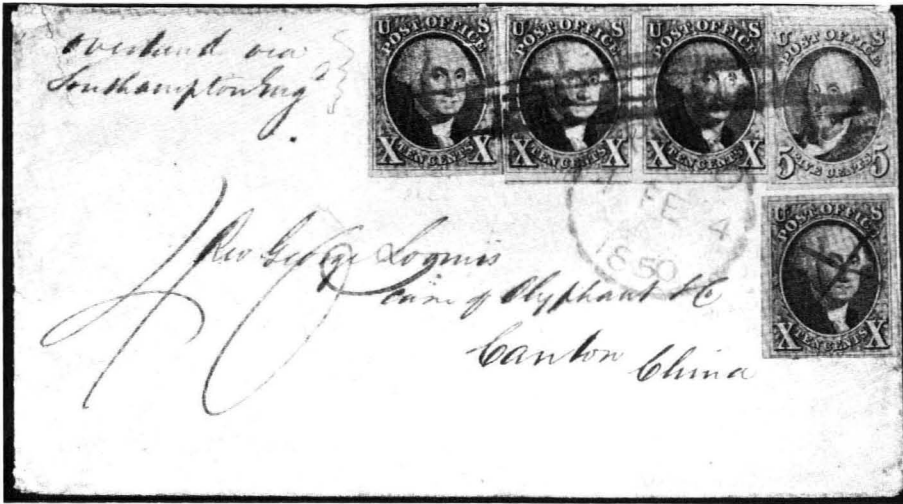 overland via
Southampton Engd
U S
POST OFFICE
X TEN CENTS X
U S
POST OFFICE
X TEN CENTS X
U S
POST OFFICE
X TEN CENTS X
U S
POST OFFICE
5 FIVE CENTS 5
FE 4
1850
U S
POST OFFICE
X TEN CENTS X
Rev George Loomis
care of Olyphant & Co
Canton China